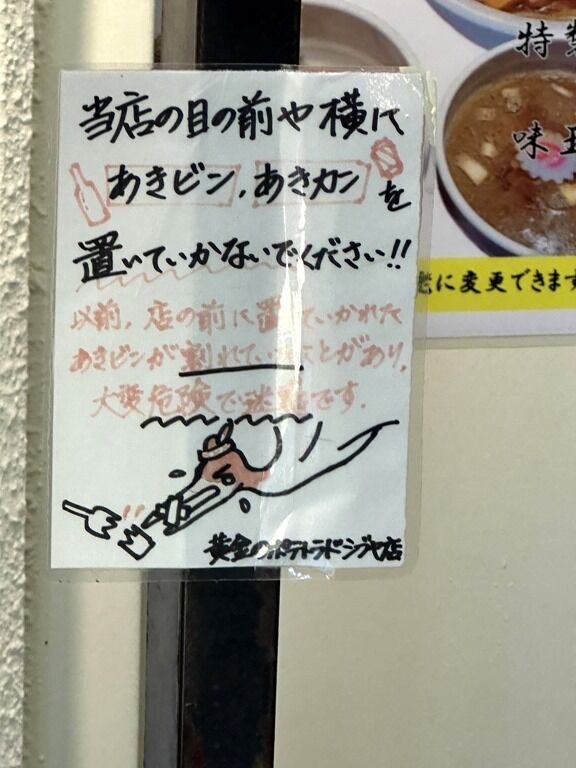 当店の目の前や横に
あきビン,あきカンを
置いていかないでください!!
以前,店の前に置いていかれた
あきビンが割れていたことがあり,
大変危険で迷惑です.
特製
味玉
に変更できます